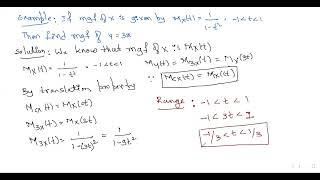 Example: If mgf of x is given by Mx(t) = 1/(1-t²) ; -1<t<1
Then find mgf of y = 3x
Solution: We know that mgf of x is Mx(t)
Mx(t) = 1/(1-t²) , -1<t<1
My(t) = M3x(t) = Mx(3t)
By translation property
∵ Mcx(t) = Mx(ct)
Mcx(t) = Mx(ct)
M3x(t) = Mx(3t)
M3x(t) = 1/(1-(3t)²) = 1/(1-9t²)
Range: -1 < t < 1
-1 < 3t < 1
-1/3 < t < 1/3